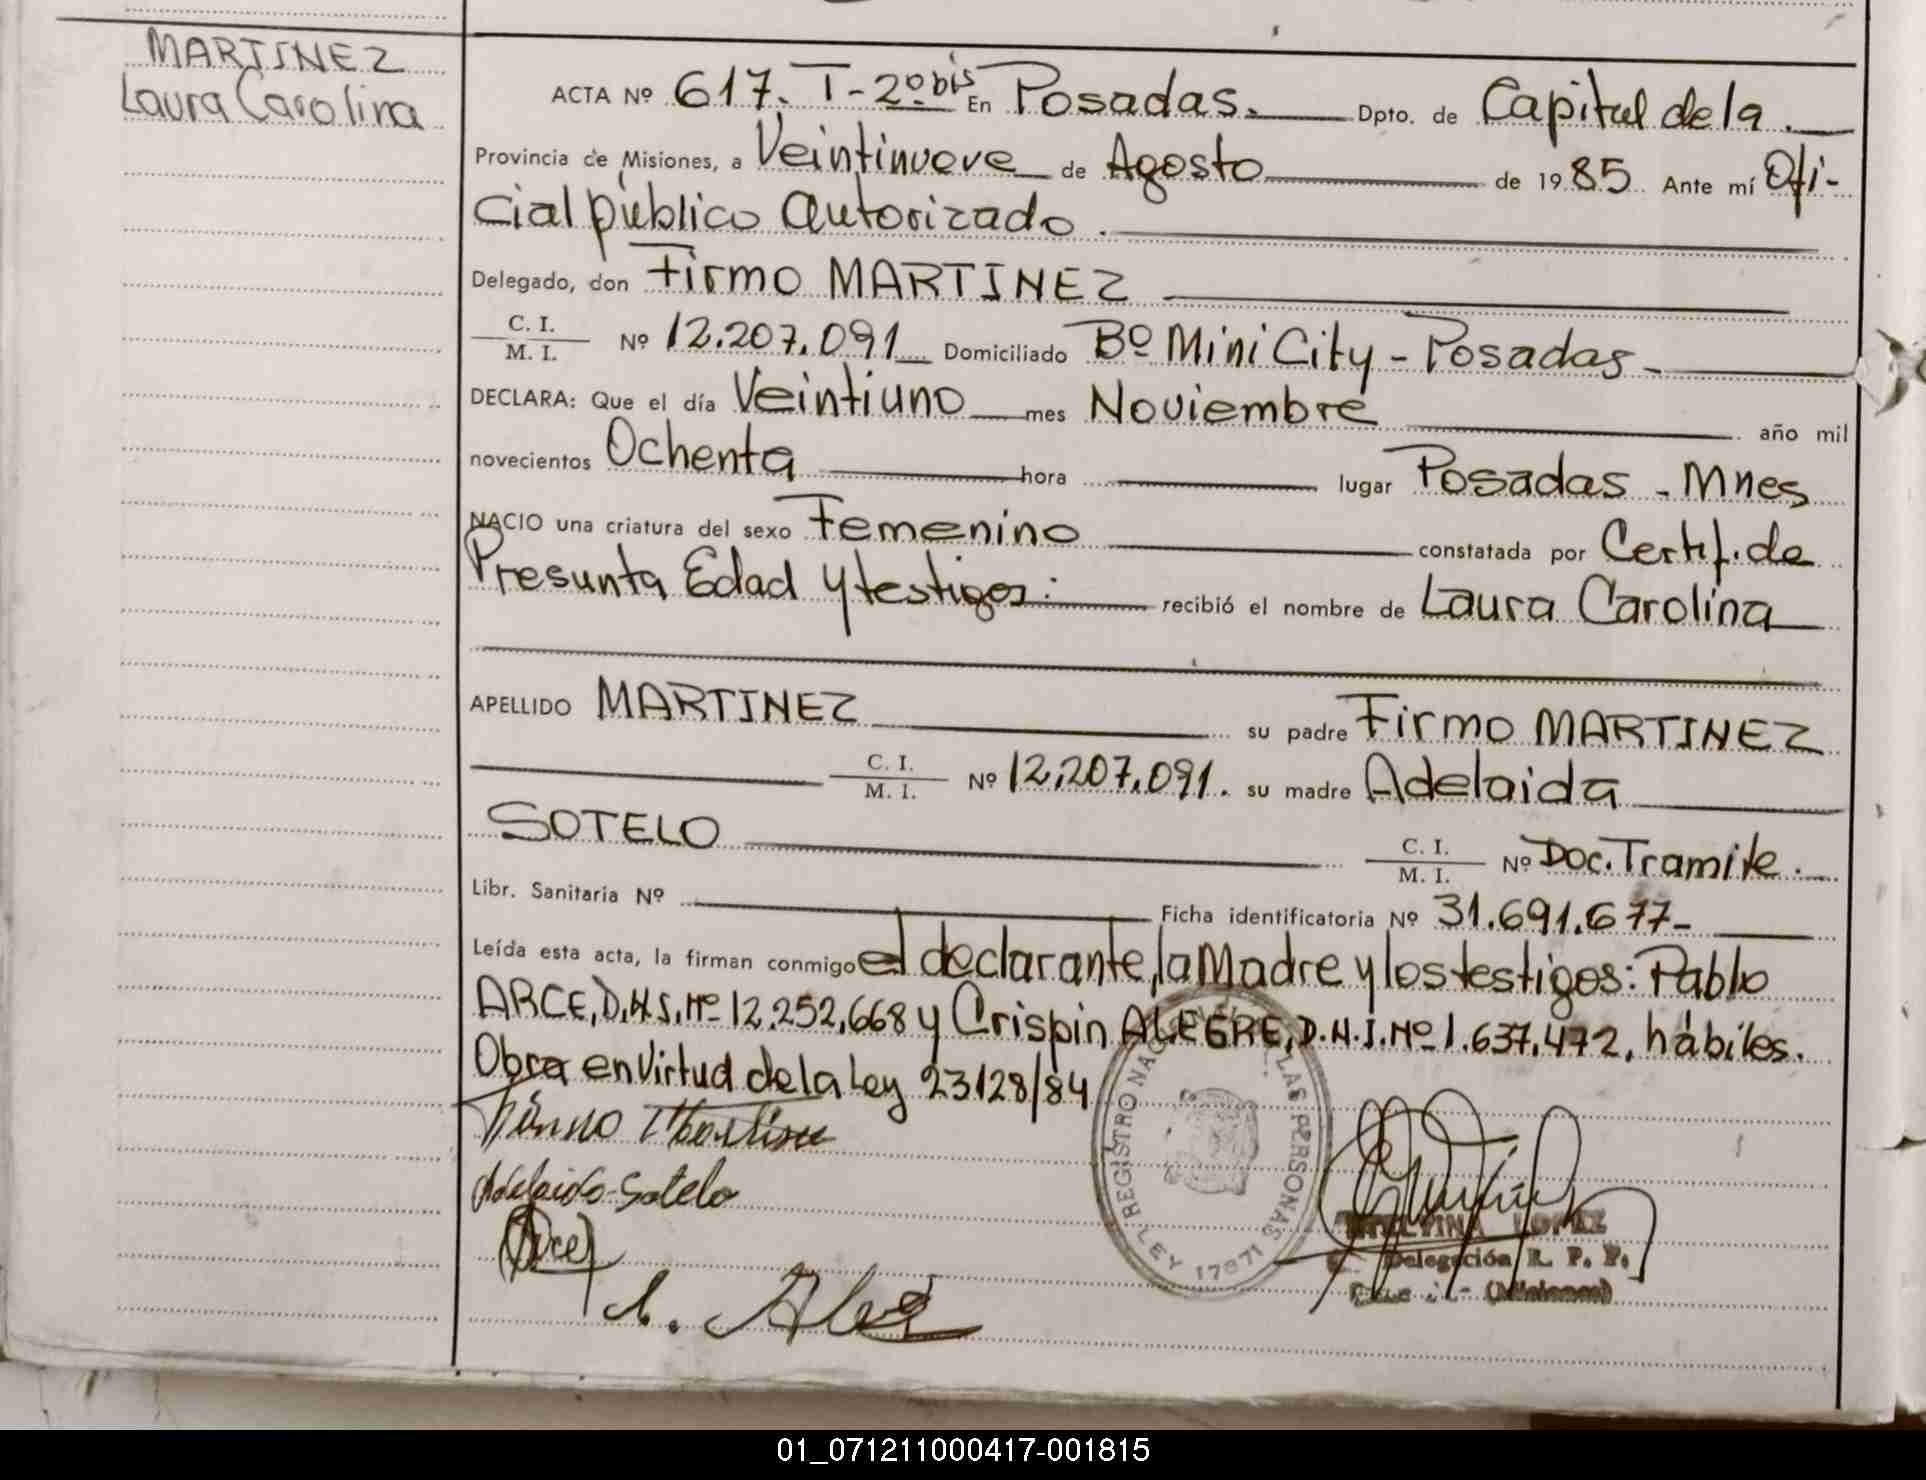 MARTINEZ
Laura Carolina
ACTA Nº 617. T-2º bis En Posadas. Dpto. de Capital de la
Provincia de Misiones, a Veintinueve de Agosto de 1985 Ante mí Ofi-
cial público autorizado.
Delegado, don Firmo MARTINEZ
C. I.
M. I. Nº 12.207.091 Domiciliado Bº Mini City - Posadas
DECLARA: Que el día Veintiuno mes Noviembre año mil
novecientos Ochenta hora lugar Posadas - Mnes
NACIO una criatura del sexo Femenino constatada por Certif. de
Presunta Edad y testigos: recibió el nombre de Laura Carolina
APELLIDO MARTINEZ su padre Firmo MARTINEZ
C. I.
M. I. Nº 12.207.091. su madre Adelaida
SOTELO C. I.
M. I. Nº Doc. Tramite.
Libr. Sanitaria Nº Ficha identificatoria Nº 31.691.677-
Leída esta acta, la firman conmigo el declarante, la Madre y los testigos: Pablo
ARCE, D.N.I. Nº 12.252.668 y Crispin ALEGRE, D.N.I. Nº 1.637.472, hábiles.
Obra en Virtud de la Ley 23128/84
Adelaida Sotelo
Arce
REGISTRO NACIONAL DE LAS PERSONAS
LEY 17671
LOPEZ
Delegación R. P. P.
(Misiones)
01_071211000417-001815